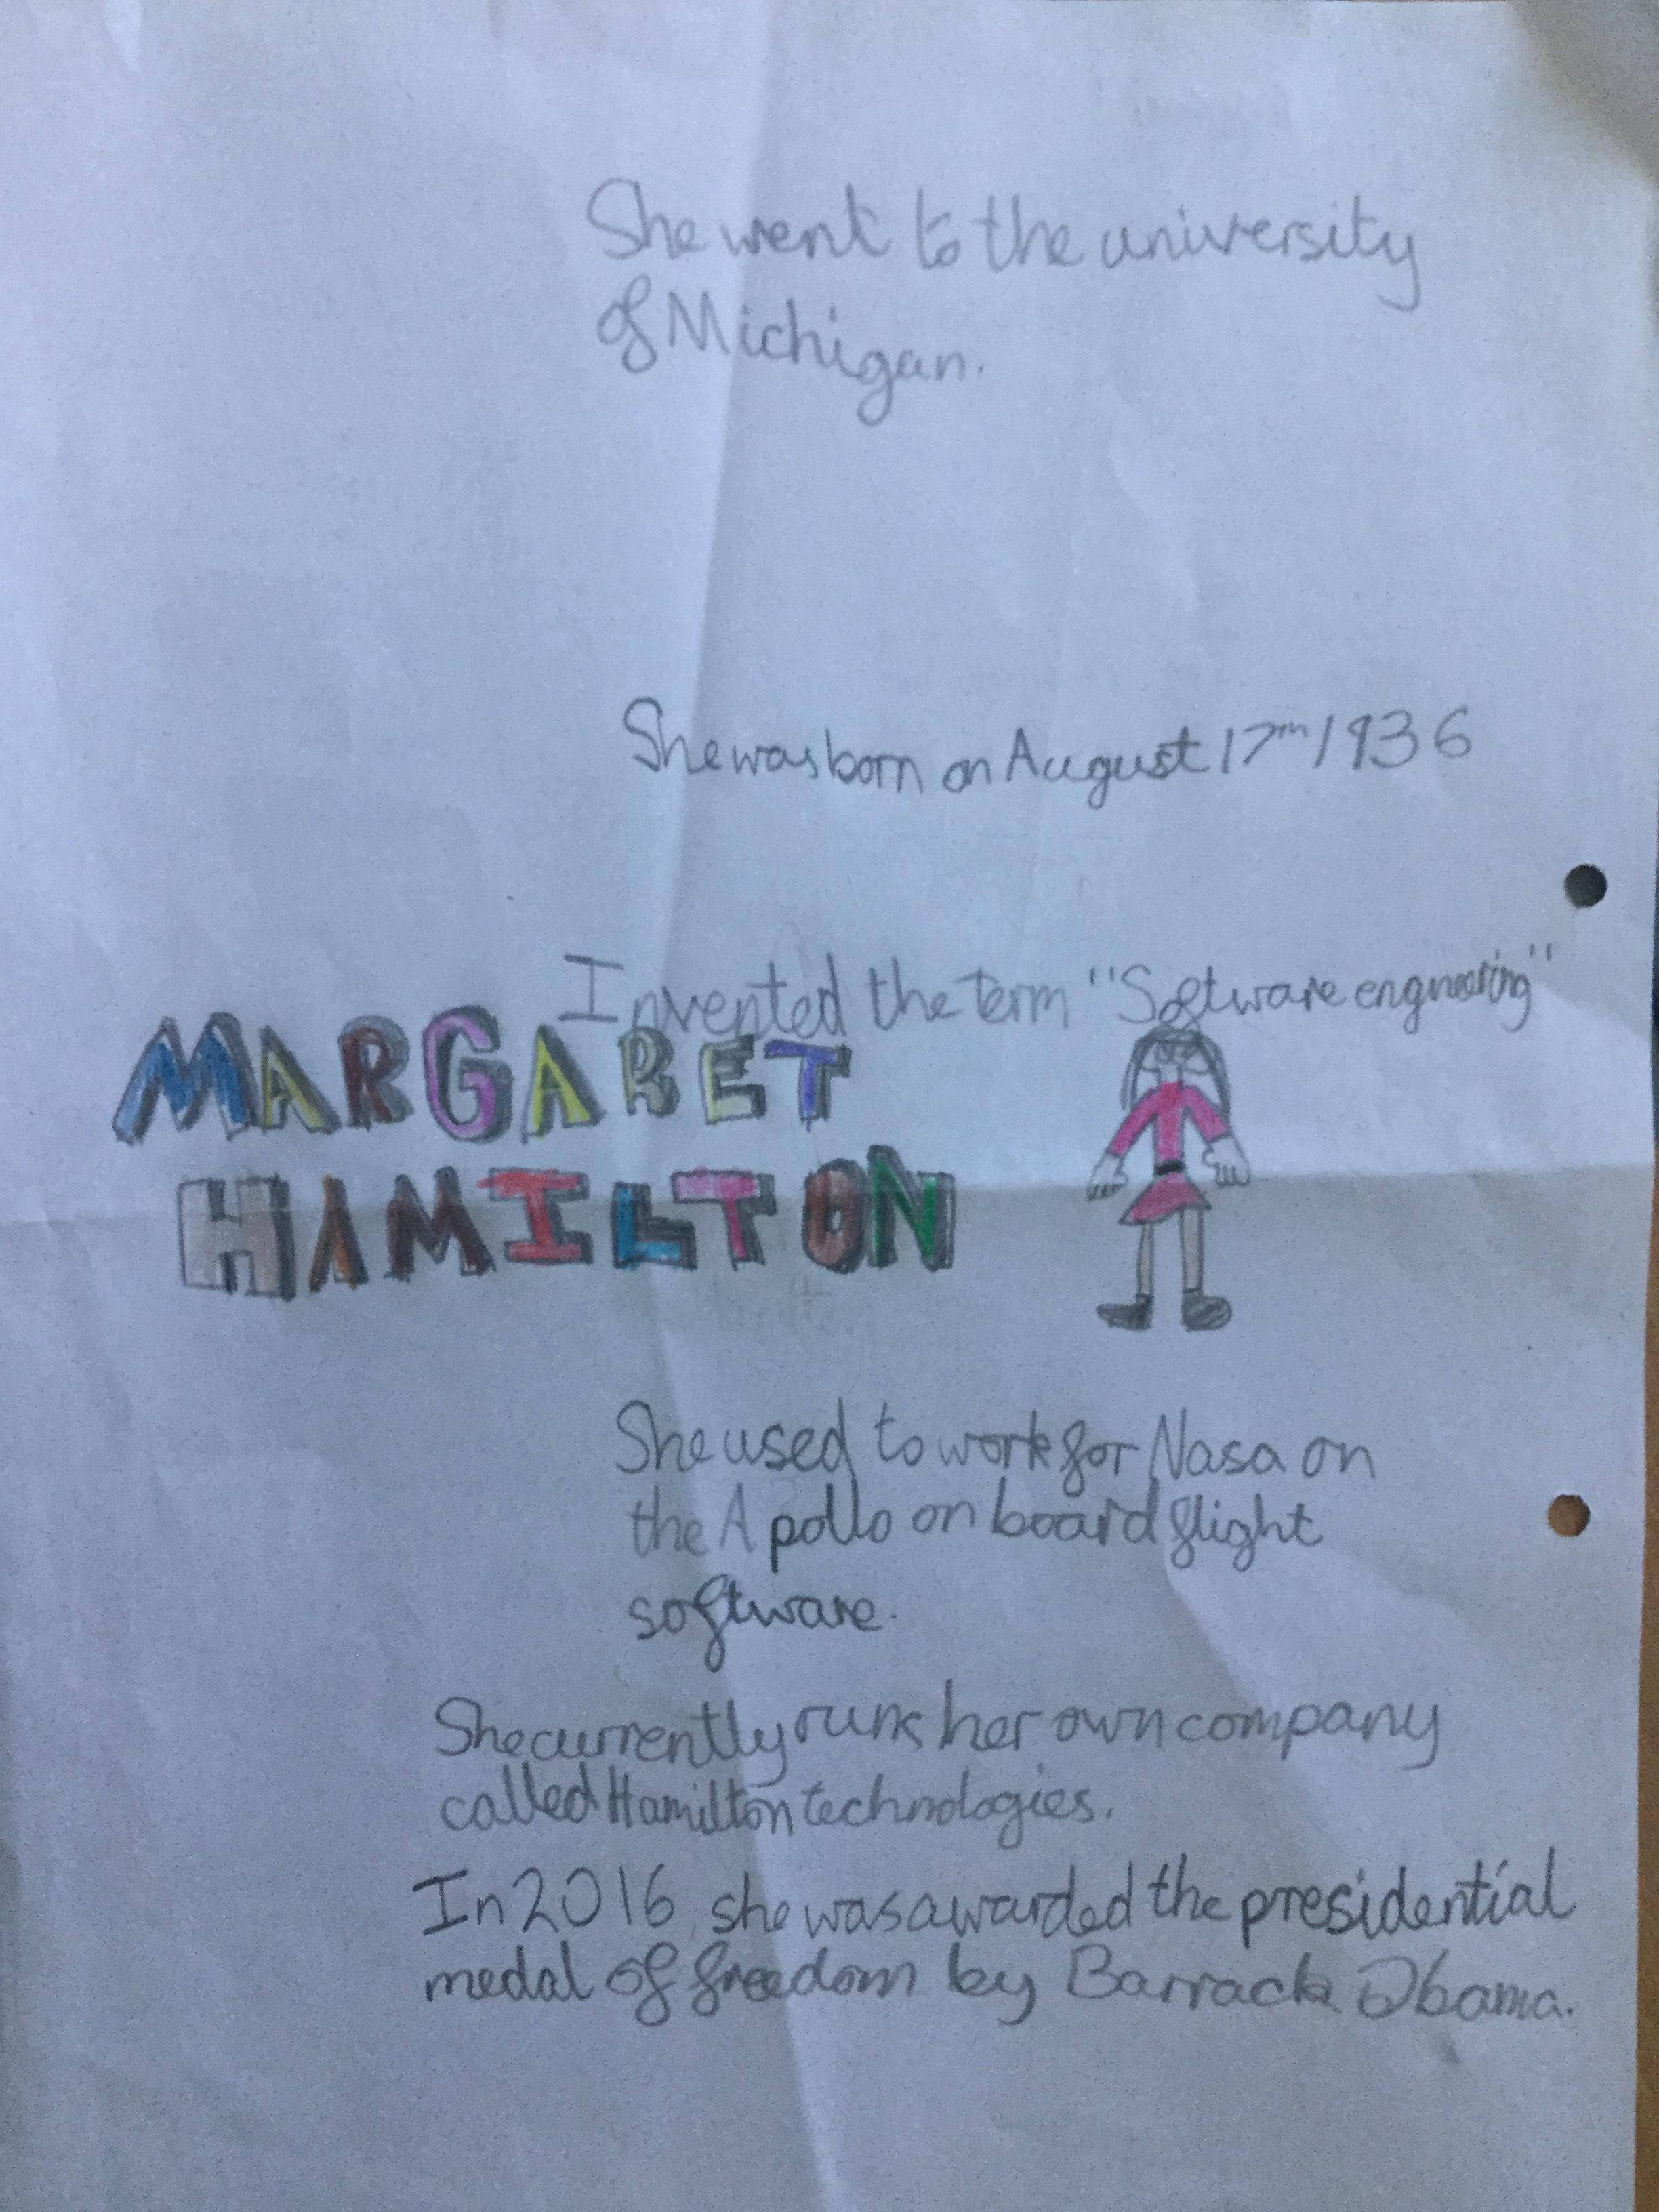 She went to the university
of Michigan.
She was born on August 17th 1936
Invented the term "Software engineering"
MARGARET
HAMILTON
She used to work for Nasa on
the Apollo on board flight
software.
She currently runs her own company
called Hamilton technologies.
In 2016, she was awarded the presidential
medal of freedom by Barrack Obama.